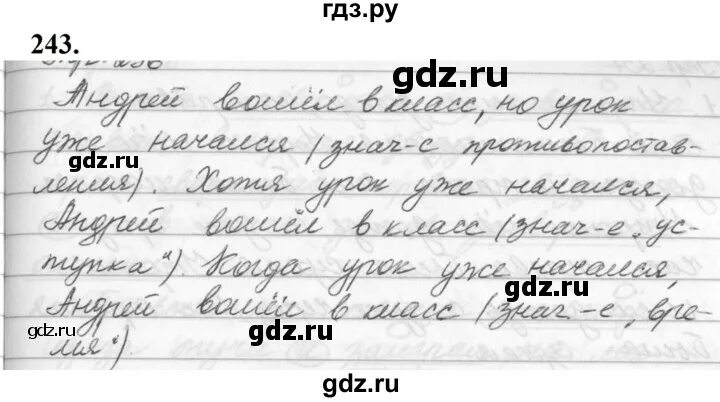 гдз.ру
243.
Андрей вошёл в класс, но урок
gdz.ru
уже начался (знач-е противопостав-
gdz.ru
ления). Хотя урок уже начался,
Андрей вошёл в класс (знач-е „ус-
тупка“). Когда урок уже начался,
gdz.ru
Андрей вошёл в класс (знач-е „вре-
gdz.ru
мя“).
gdz.ru
gdz.ru